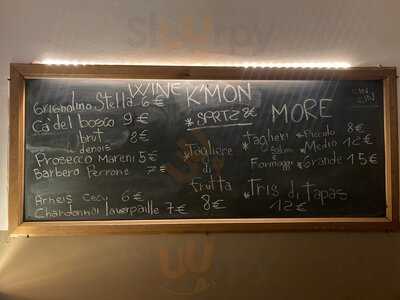 WINE
Grignolino Stella 6€
Ca' del bosco 9€
brut 8€
Prosecco Mareni 5€
Barbera Perrone 7€
Arneis Cecu 6€
Chardonnai 7€
K'MON
*SPRTZ 8€
*Tagliere
di
frutta
8€
MORE
*Taglieri
Salumi
e
Formaggi
*Piccolo 8€
*Medio 12€
*Grande 15€
*Tris di Tapas
12€
CIN
CIN